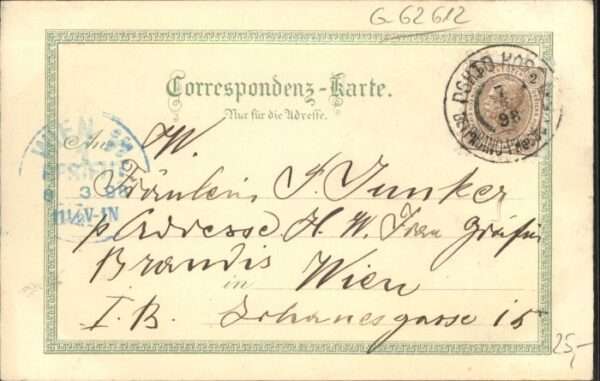 G 62612
Correspondenz-Karte.
Nur für die Adresse.
An W.
Fräulein J. Junker
p Adresse H. W. Frau Gräfin
Brandis
in Wien
I. B. Johanesgasse 15
WIEN
3 98
11½V-IN
7
98
25,-